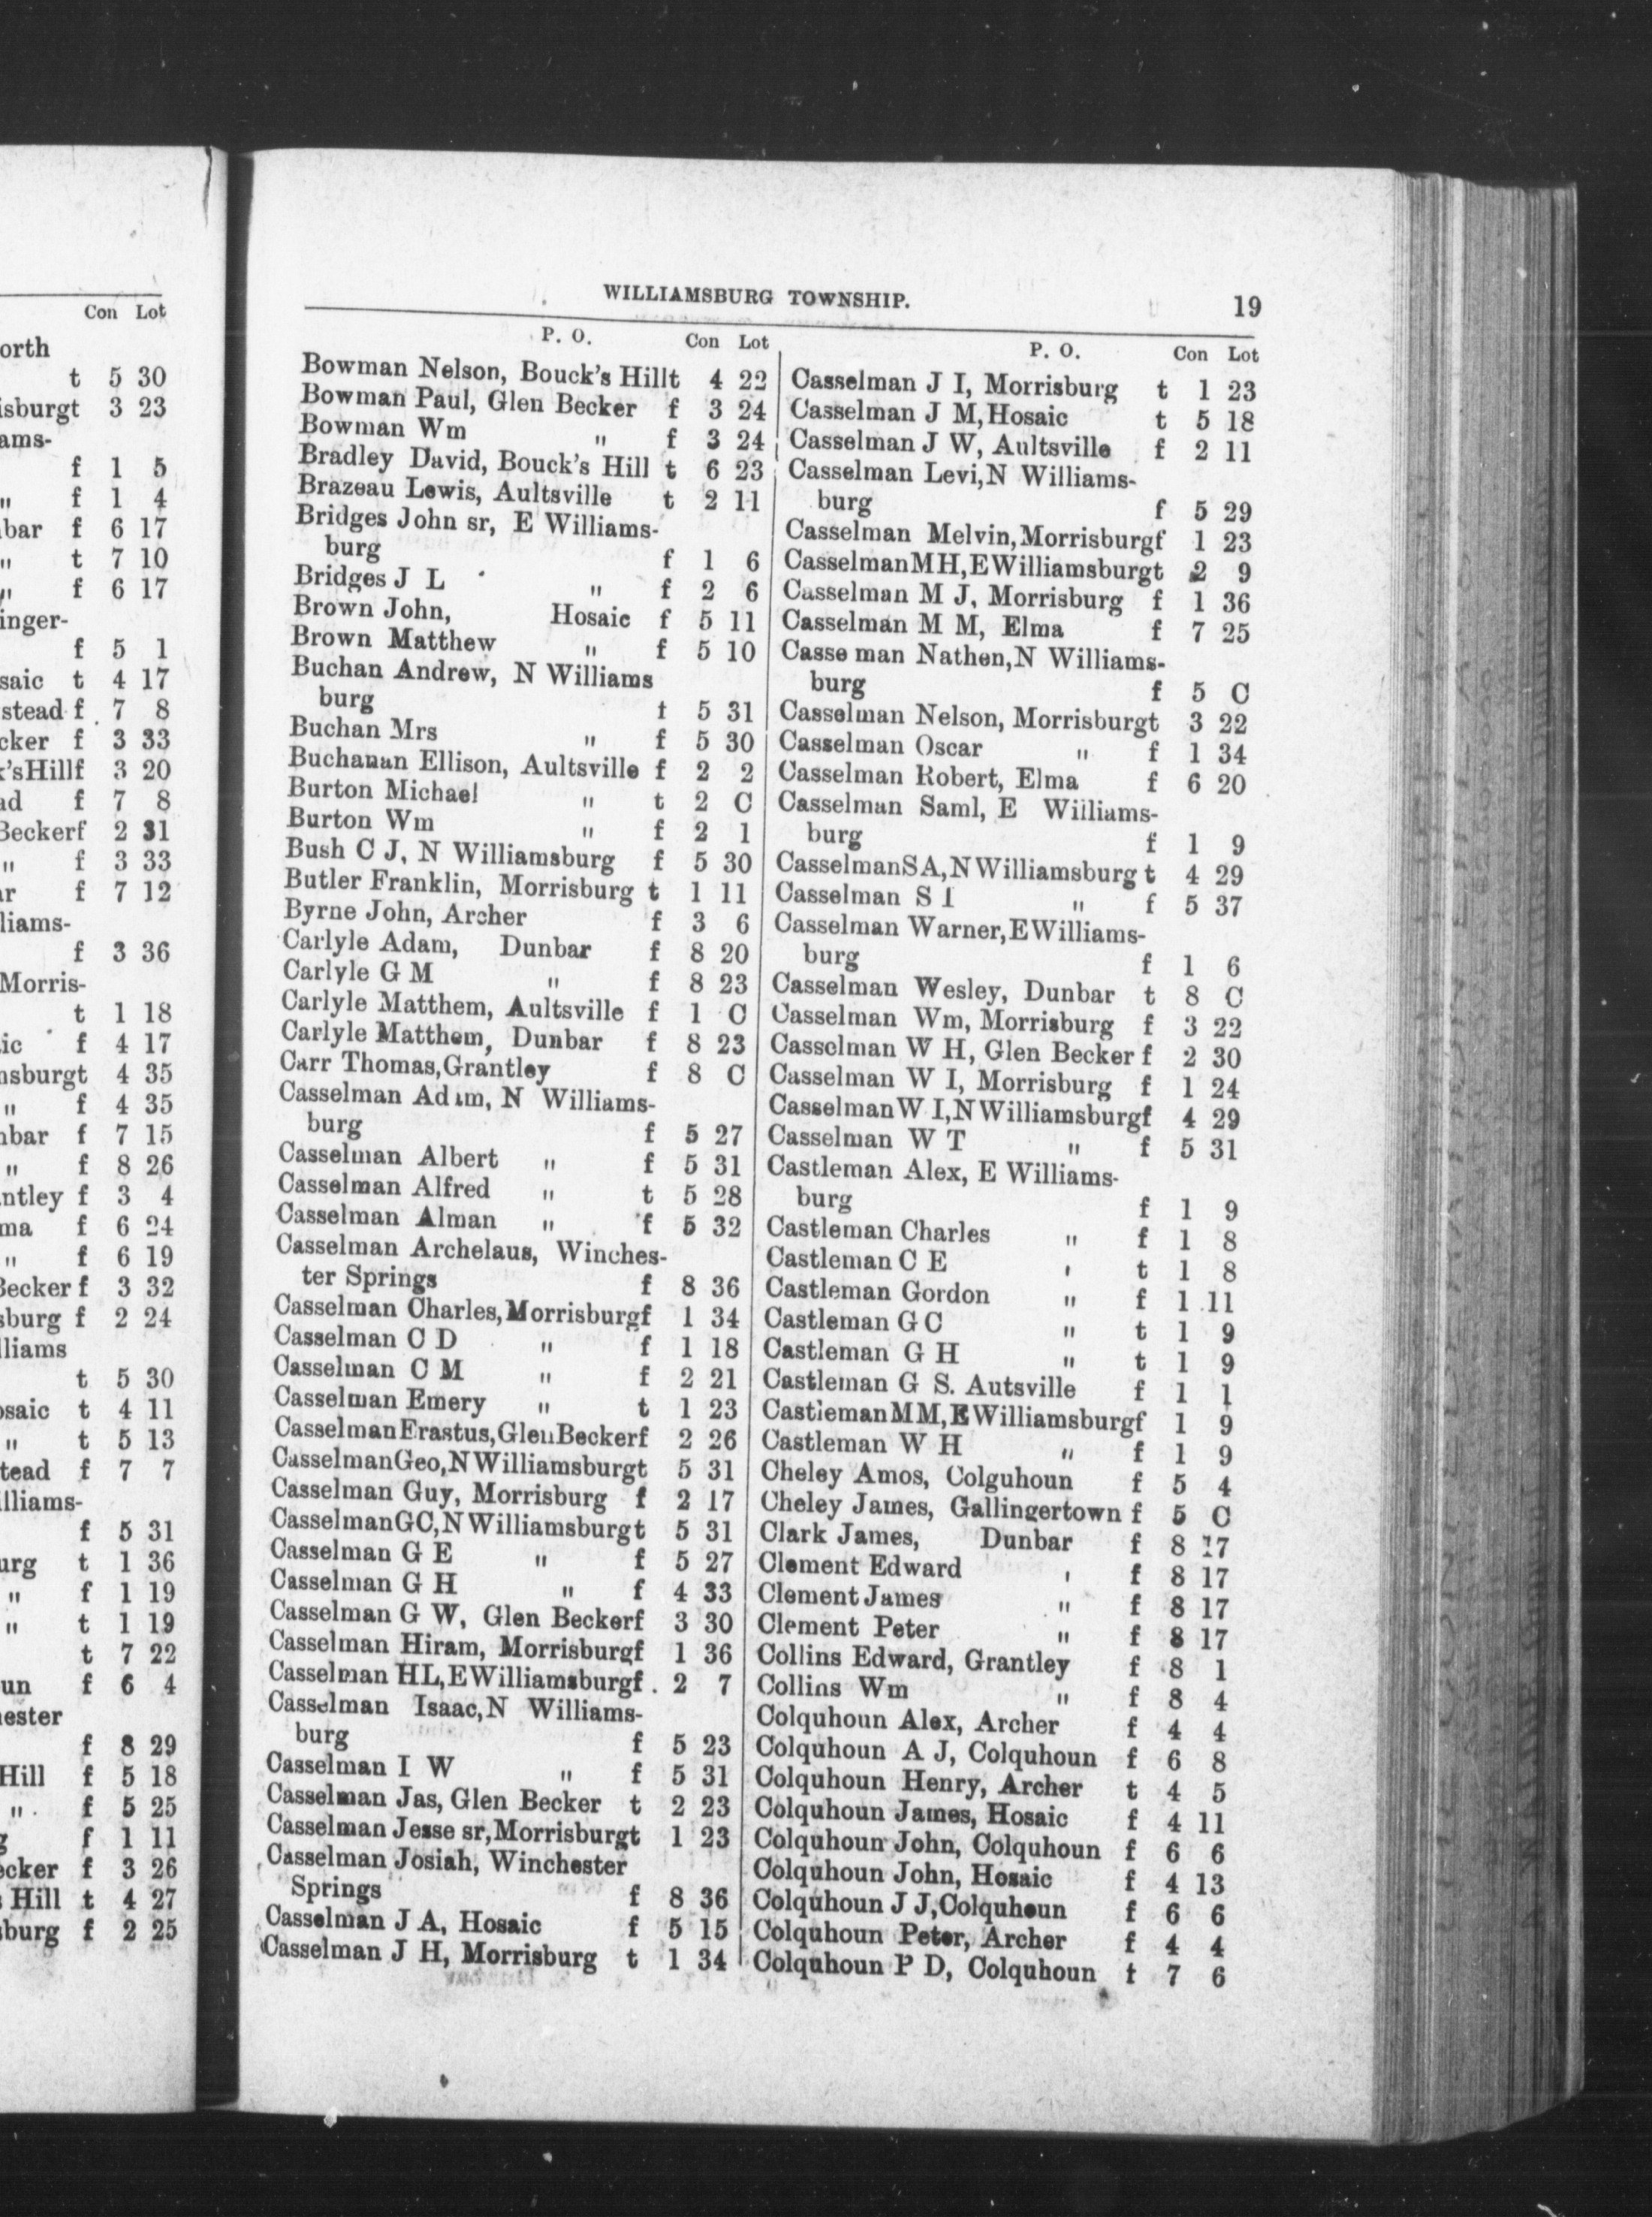 Con Lot
orth
t 5 30
isburgt 3 23
ams-
f 1 5
" f 1 4
bar f 6 17
" t 7 10
" f 6 17
inger-
f 5 1
saic t 4 17
stead f 7 8
cker f 3 33
k'sHillf 3 20
ad f 7 8
Beckerf 2 31
" f 3 33
ar f 7 12
liams-
f 3 36
Morris-
t 1 18
ic f 4 17
nsburgt 4 35
" f 4 35
nbar f 7 15
" f 8 26
ntley f 3 4
ma f 6 24
" f 6 19
Becker f 3 32
sburg f 2 24
lliams
t 5 30
osaic t 4 11
" t 5 13
tead f 7 7
illiams-
f 5 31
urg t 1 36
" f 1 19
" t 1 19
t 7 22
un f 6 4
ester
f 8 29
Hill f 5 18
" f 5 25
g f 1 11
ecker f 3 26
Hill t 4 27
burg f 2 25
WILLIAMSBURG TOWNSHIP. 19
P. O. Con Lot
Bowman Nelson, Bouck's Hillt 4 22
Bowman Paul, Glen Becker f 3 24
Bowman Wm " f 3 24
Bradley David, Bouck's Hill t 6 23
Brazeau Lewis, Aultsville t 2 11
Bridges John sr, E Williams-
burg f 1 6
Bridges J L " f 2 6
Brown John, Hosaic f 5 11
Brown Matthew " f 5 10
Buchan Andrew, N Williams
burg t 5 31
Buchan Mrs " f 5 30
Buchanan Ellison, Aultsville f 2 2
Burton Michael " t 2 C
Burton Wm " f 2 1
Bush C J, N Williamsburg f 5 30
Butler Franklin, Morrisburg t 1 11
Byrne John, Archer f 3 6
Carlyle Adam, Dunbar f 8 20
Carlyle G M " f 8 23
Carlyle Matthem, Aultsville f 1 C
Carlyle Matthem, Dunbar f 8 23
Carr Thomas,Grantley f 8 C
Casselman Adam, N Williams-
burg f 5 27
Casselman Albert " f 5 31
Casselman Alfred " t 5 28
Casselman Alman " f 5 32
Casselman Archelaus, Winches-
ter Springs f 8 36
Casselman Charles,Morrisburgf 1 34
Casselman C D " f 1 18
Casselman C M " f 2 21
Casselman Emery " t 1 23
CasselmanErastus,GlenBeckerf 2 26
CasselmanGeo,NWilliamsburgt 5 31
Casselman Guy, Morrisburg f 2 17
CasselmanGC,NWilliamsburgt 5 31
Casselman G E " f 5 27
Casselman G H " f 4 33
Casselman G W, Glen Beckerf 3 30
Casselman Hiram, Morrisburgf 1 36
Casselman HL,EWilliamsburgf 2 7
Casselman Isaac,N Williams-
burg f 5 23
Casselman I W " f 5 31
Casselman Jas, Glen Becker t 2 23
Casselman Jesse sr,Morrisburgt 1 23
Casselman Josiah, Winchester
Springs f 8 36
Casselman J A, Hosaic f 5 15
Casselman J H, Morrisburg t 1 34
P. O. Con Lot
Casselman J I, Morrisburg t 1 23
Casselman J M,Hosaic t 5 18
Casselman J W, Aultsville f 2 11
Casselman Levi,N Williams-
burg f 5 29
Casselman Melvin,Morrisburgf 1 23
CasselmanMH,EWilliamsburgt 2 9
Casselman M J, Morrisburg f 1 36
Casselman M M, Elma f 7 25
Casse man Nathen,N Williams-
burg f 5 C
Casselman Nelson, Morrisburgt 3 22
Casselman Oscar " f 1 34
Casselman Robert, Elma f 6 20
Casselman Saml, E Williams-
burg f 1 9
CasselmanSA,NWilliamsburg t 4 29
Casselman S I " f 5 37
Casselman Warner,EWilliams-
burg f 1 6
Casselman Wesley, Dunbar t 8 C
Casselman Wm, Morrisburg f 3 22
Casselman W H, Glen Becker f 2 30
Casselman W I, Morrisburg f 1 24
CasselmanW I,NWilliamsburgf 4 29
Casselman W T " f 5 31
Castleman Alex, E Williams-
burg f 1 9
Castleman Charles " f 1 8
Castleman C E ' t 1 8
Castleman Gordon " f 1 11
Castleman G C " t 1 9
Castleman G H " t 1 9
Castleman G S. Autsville f 1 1
CastlemanMM,EWilliamsburgf 1 9
Castleman W H " f 1 9
Cheley Amos, Colguhoun f 5 4
Cheley James, Gallingertown f 5 C
Clark James, Dunbar f 8 17
Clement Edward ' f 8 17
Clement James " f 8 17
Clement Peter " f 8 17
Collins Edward, Grantley f 8 1
Collins Wm " f 8 4
Colquhoun Alex, Archer f 4 4
Colquhoun A J, Colquhoun f 6 8
Colquhoun Henry, Archer t 4 5
Colquhoun James, Hosaic f 4 11
Colquhoun John, Colquhoun f 6 6
Colquhoun John, Hosaic f 4 13
Colquhoun J J,Colquhoun f 6 6
Colquhoun Peter, Archer f 4 4
Colquhoun P D, Colquhoun t 7 6